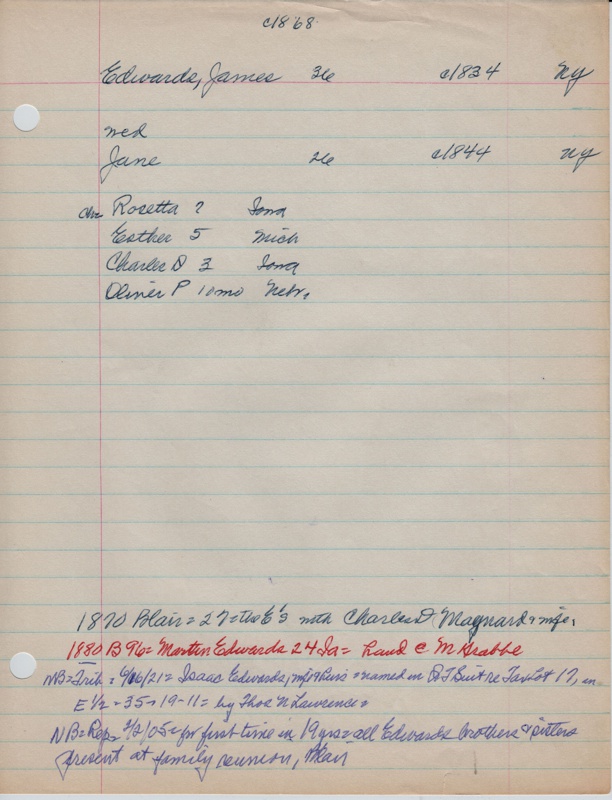 c1868
Edwards, James 36 c1834 NY
med
Jane 26 c1844 NY
ch= Rosetta 7 Iowa
Esther 5 Mich
Charles D 3 Iowa
Oliver P 10mo Nebr.
1870 Blair = 27 = the E's with Charles D Maynard & wife,
1880 B96 = Martin Edwards 24 Ia = hand C M Grabbe
NB = Trib = 6/16/21 = Isaac Edwards, wife & heirs = named in QT Suit re Tax Lot 17, in
E 1/2 - 35 - 19-11 = by Thos N Lawrence =
NB = Rep = 3/2/05 = for first time in 19 yrs = all Edwards brothers & sisters
present at family reunion, Blair